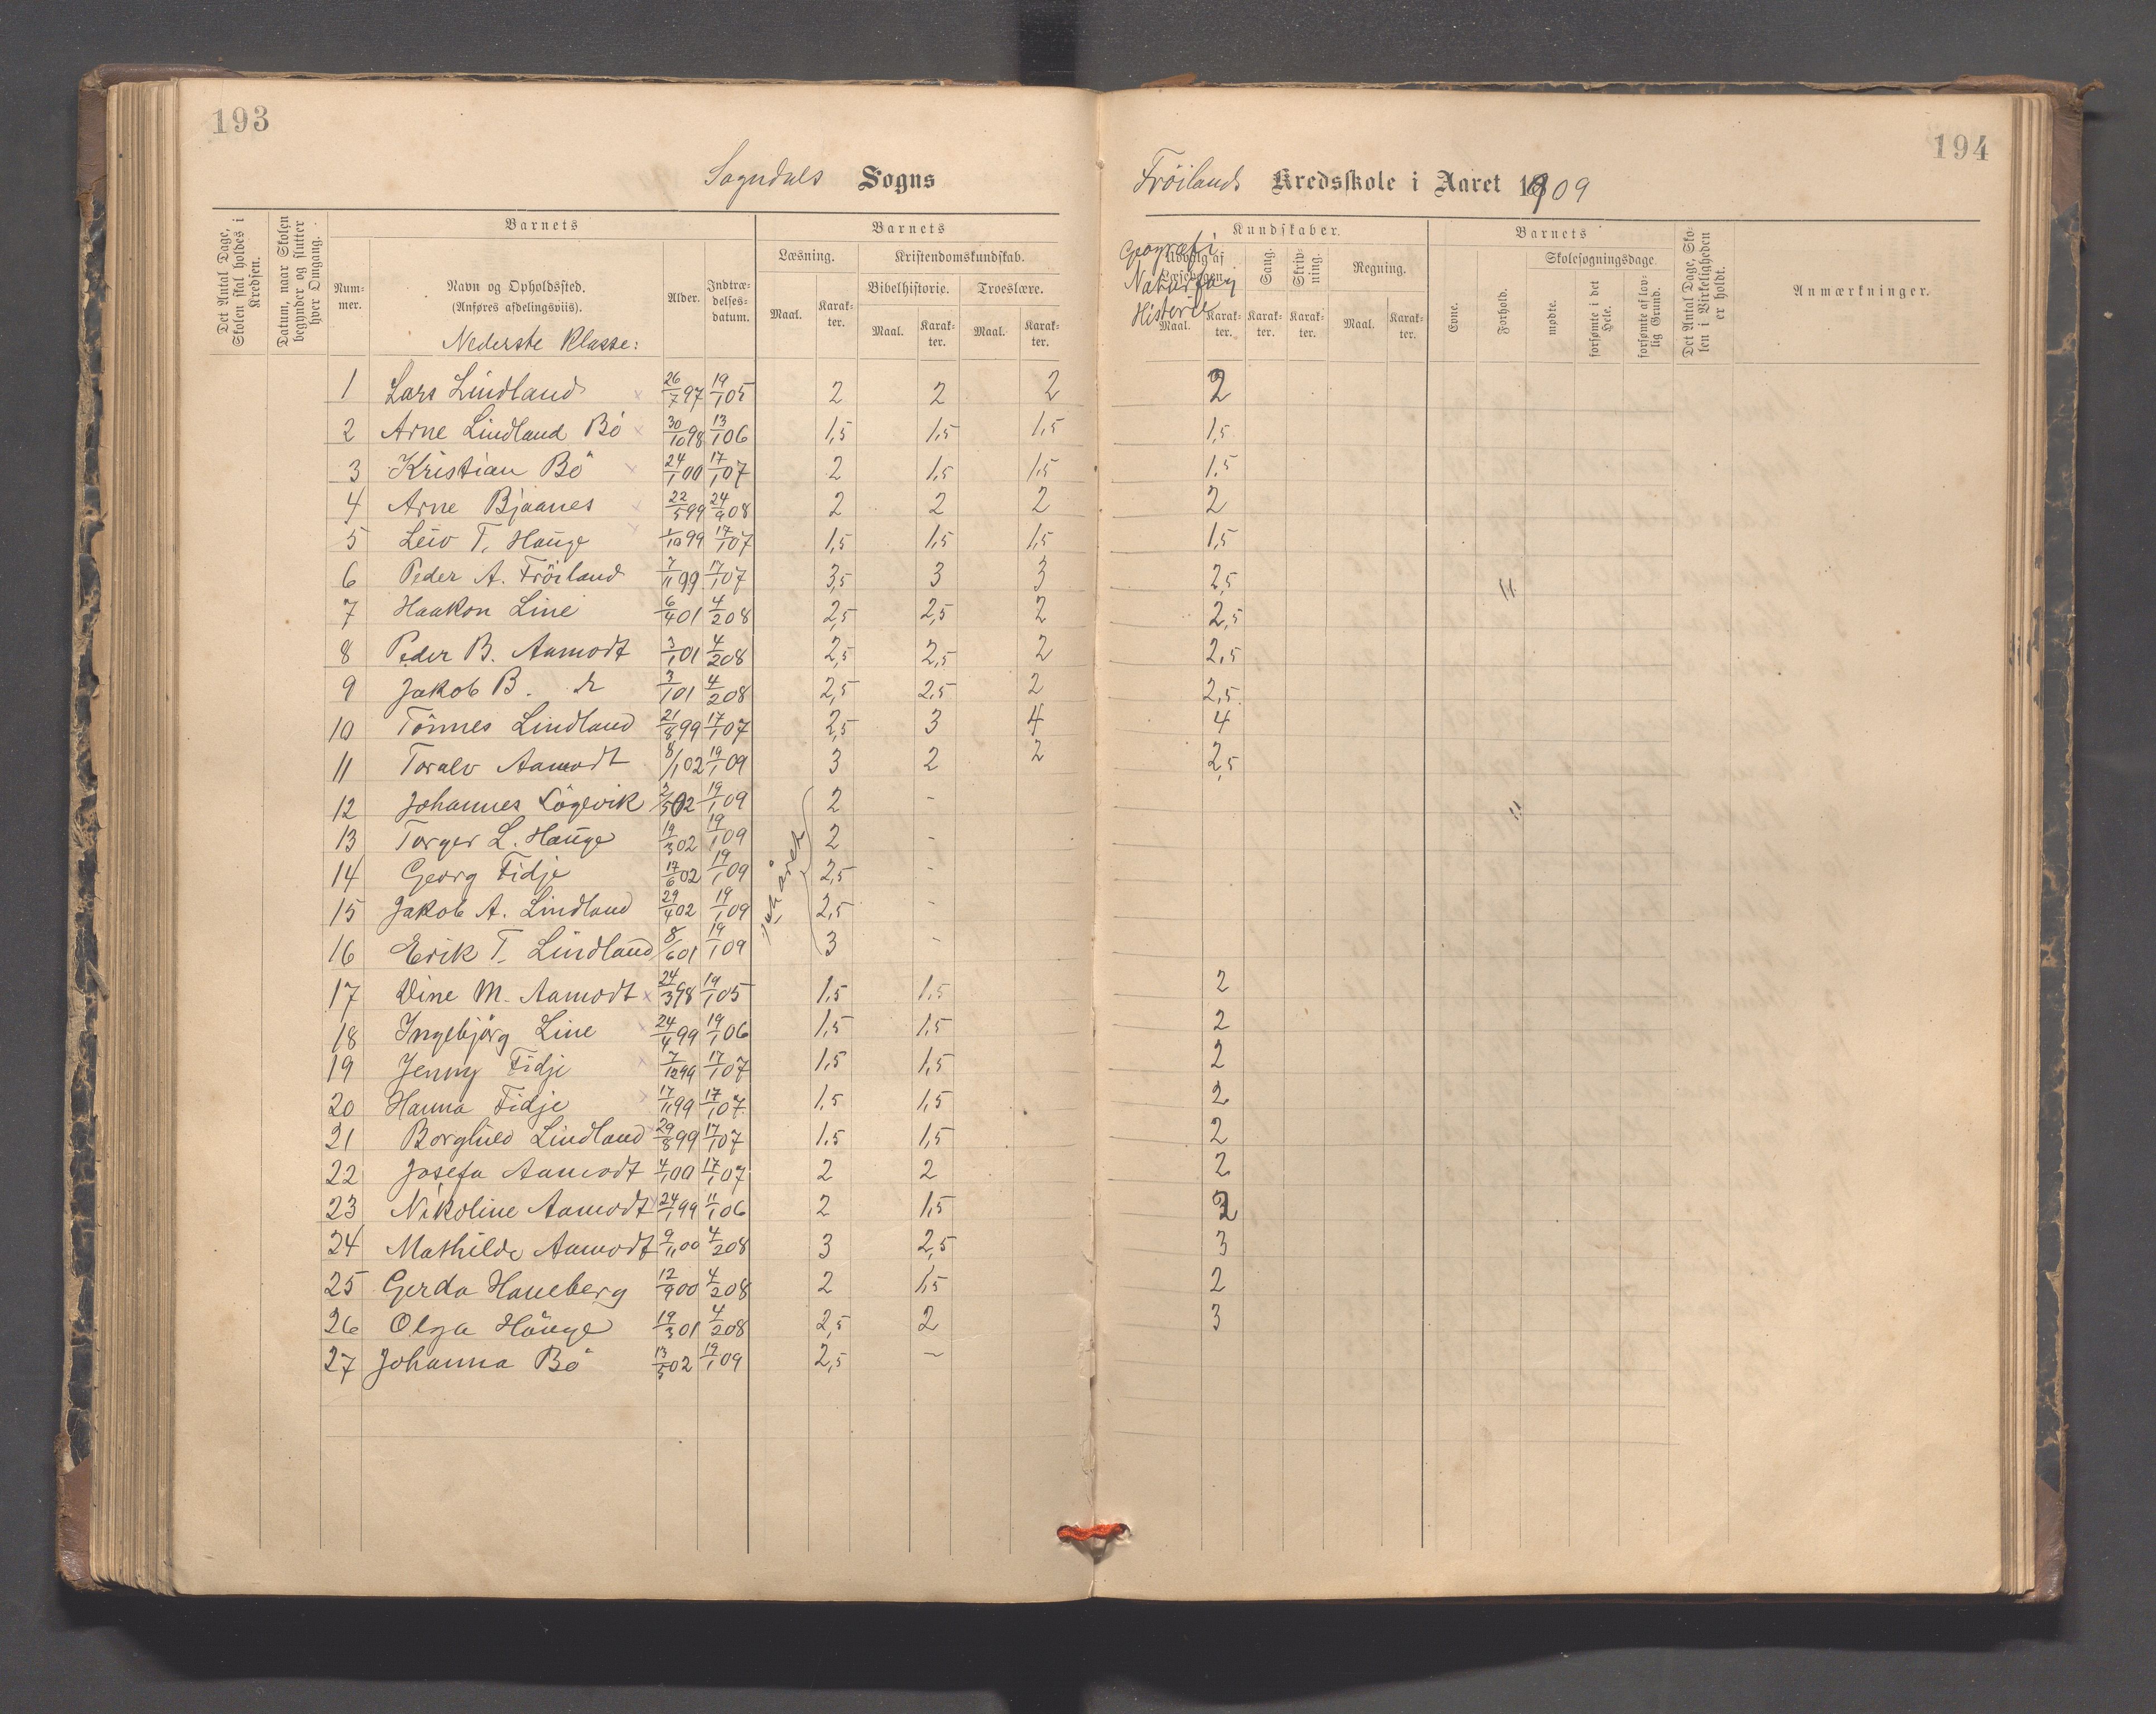 193
194
Sogndals Sogns
Frøilands Kredsskole i Aaret 1909
Det Antal Dage, Skolen skal holdes i Kredsen.
Datum, naar Skolen begynder og slutter hver Omgang.
Barnets
Num-mer.
Navn og Opholdssted.
(Anføres afdelingsviis).
Nederste Klasse:
Alder.
Indtræ-delses-datum.
Barnets
Læsning.
Maal.
Karak-ter.
Kristendomskundskab.
Bibelhistorie.
Maal.
Karak-ter.
Troeslære.
Maal.
Karak-ter.
Kundskaber.
Geografi
Naturfag
Historie
Udvalg af Læsebogen.
Maal.
Karak-ter.
Sang.
Karak-ter.
Skriv-ning.
Karak-ter.
Regning.
Maal.
Karak-ter.
Barnets
Evne.
Forhold.
Skolesøgningsdage
mødte.
forsømte i det Hele.
forsømte af lov-lig Grund.
Det Antal Dage, Sko-len i Virkeligheden er holdt.
Anmærkninger.
1 Lars Lindland 26/7 97 19/1 05 2 2 2 2
2 Arne Lindland Bö 30/10 98 13/1 06 1,5 1,5 1,5 1,5
3 Kristian Bö 24/1 00 17/1 07 2 1,5 1,5 1,5
4 Arne Bjaanes 22/5 99 24/9 08 2 2 2 2
5 Leiv T. Hauge 1/10 99 17/1 07 1,5 1,5 1,5 1,5
6 Peder A. Fröiland 7/11 99 17/1 07 3,5 3 3 2,5 "
7 Haakon Line 6/4 01 4/2 08 2,5 2,5 2 2,5
8 Peder B. Aamodt 3/1 01 4/2 08 2,5 2,5 2 2,5
9 Jakob B. 3/1 01 4/2 08 2,5 2,5 2 2,5
10 Tönnes Lindland 21/8 99 17/1 07 2,5 3 4 4
11 Toralv Aamodt 8/1 02 19/1 09 3 2 2 2,5
12 Johannes Lögevik 2/5 02 19/1 09 2 - "
13 Torger L. Hauge 19/3 02 19/1 09 2 -
14 Georg Fidje 17/6 02 19/1 09 2,5 -
15 Jakob A. Lindland 29/4 02 19/1 09 2,5 -
16 Erik T. Lindland 8/6 01 19/1 09 3 -
17 Vine M. Aamodt x 24/3 98 19/1 05 1,5 1,5 2
18 Ingebjörg Line 24/4 99 19/1 06 1,5 1,5 2
19 Jenny Fidje 7/12 99 17/1 07 1,5 1,5 2
20 Hanna Fidje 17/11 99 17/1 07 1,5 1,5 2
21 Borghild Lindland 29/8 99 17/1 07 1,5 1,5 2
22 Josefa Aamodt 4/1 00 17/1 07 2 2 2
23 Nikoline Aamodt 24/1 99 11/1 06 2 1,5 2
24 Mathilde Aamodt 9/11 00 4/2 08 3 2,5 3
25 Gerda Haneberg 12/9 00 4/2 08 2 1,5 2
26 Olga Hauge 19/3 01 4/2 08 2,5 2 3
27 Johanna Bö 13/5 02 19/1 09 2,5 -